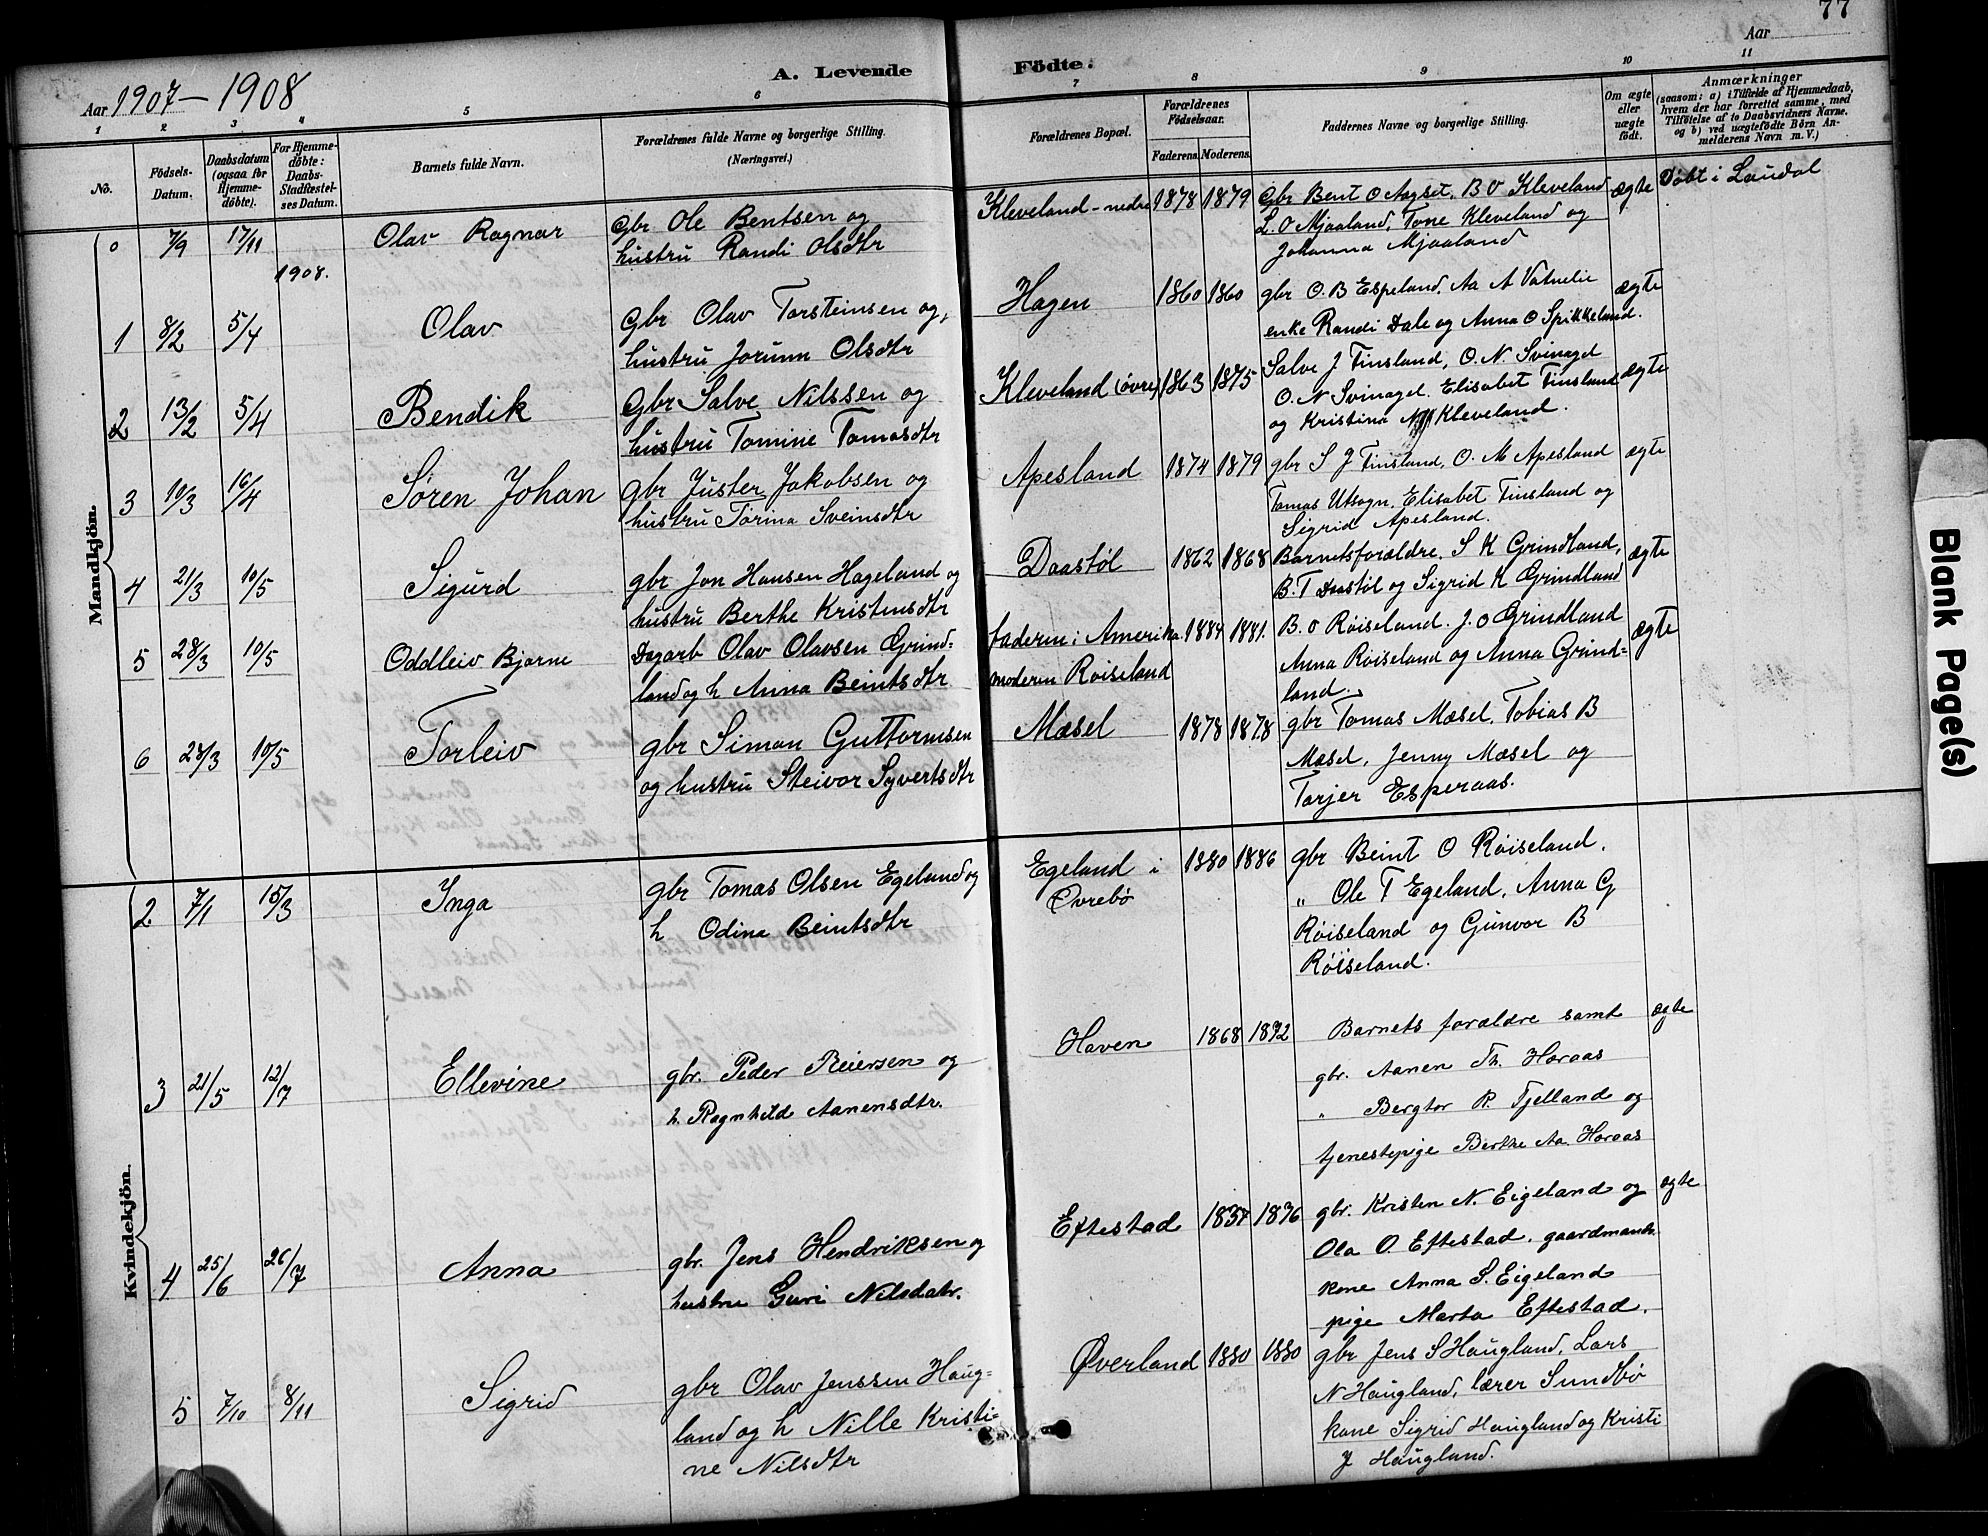 77
Aar 1907-1908
A. Levende Födte.
Aar
1 2 3 4 5 6 7 8 9 10 11
No.
Födsels-
Datum.
Daabsdatum
(ogsaa for
Hjemme-
döbte).
For Hjemme-
döbte:
Daabs-
Stadfæstel-
ses Datum.
Barnets fulde Navn.
Forældrenes fulde Navne og borgerlige Stilling.
(Næringsvei.)
Forældrenes Bopæl.
Forældrenes
Födselsaar.
Faderens. Moderens.
Faddernes Navne og borgerlige Stilling.
Om ægte
eller
uægte
født.
Anmærkninger
(saasom: a) i Tilfælde af Hjemmedaab,
hvem der har forrettet samme, med
Tilföielse af to Daabsvidners Navne.
og b) ved uægtefödte Börn An-
melderens Navn m. V.)
Mandkjön.
0 7/9 17/11 Olav Ragnar
Gbr Ole Bentsen og
hustru Randi Olsdtr
Kleveland-nedre 1878 1879
Gbr Bent O Aagset, B O Kleveland
L. O Mjaaland, Tone Kleveland og
Johanna Mjaaland
ægte Döbt i Laudal
1908.
1 8/2 5/4 Olav
Gbr Olav Torsteinsen og
hustru Jorunn Olsdtr
Hagen 1860 1860
gbr O. B Espeland, Aa A Vatnelie
enke Randi Dale og Anna O Spikkeland.
ægte
2 13/2 5/4 Bendik
Gbr Salve Nilssen og
hustru Tomine Tomasdtr
Kleveland (övre) 1863 1875
Salve J Finsland, O. N. Svinagel
O. N Svinagel. Elisabet Finsland
og Kristina N Kleveland.
ægte
3 10/3 16/4 Sören Johan
gbr Juster Jakobsen og
hustru Torina Sveinsdtr
Apesland 1874 1879
gbr S J Finsland, O. M Apesland
Tomas Utsogn, Elisabet Finsland og
Sigrid Apesland.
ægte
4 21/3 10/5 Sigurd
gbr Jon Hansen Hageland og
hustru Berthe Kristensdtr
Daastöl 1862 1868
Barnetsforældre, S K Grindland,
B. T Daastöl og Sigrid K Grindland
ægte
5 28/3 10/5 Oddleiv Bjarne
Dagarb Olav Olavsen Grind-
land og h Anna Beintsdtr
faderen i Amerika 1884 1881.
moderen Röiseland
B. O Röiseland. J. O Grindland
Anna Röiseland og Anna Grind-
land.
ægte
6 24/3 10/5 Torleiv
gbr Simon Guttormsen
og hustru Steivor Syvertsdtr
Mæsel 1878 1878
gbr Tomas Mæsel, Tobias B
Mæsel, Jenny Mæsel og
Torjer Esperaas.
Kvindekjön.
2. 7/1 15/3 Inga
gbr Tomas Olsen Egeland og
h Odina Beintsdtr
Egeland i 1880 1886
Øvrebö
gbr Beint O Röiseland.
" Ole T Egeland, Anna G
Röiseland og Gunvor B
Röiseland.
3 21/5 12/7 Ellevine
gbr. Peder Reiersen og
h. Ragnhild Aanensdtr.
Haven 1868 1872
Barnets forældre samt
gbr. Aanen Th. Horaas
" Bergtor R. Tjelland og
tjenestepige Berthe Aa. Horaas
ægte
4 25/6 26/7 Anna
gbr. Jens Hendriksen og
hustru Guri Nilsdatr.
Eftestad 1876
gbr. Kristen N. Eigeland og
Ola O. Eftestad, gaardmands-
kone Anna S. Eigeland
pige Marta Eftestad.
ægte
5 7/10 8/11 Sigrid
gbr Olav Jenssen Haug-
land og h Nille Kristi-
ne Nilsdtr
Øverland 1880 1880
gbr Jens S Haugland, Lars
N Haugland, lærer Sundbö
kone Sigrid Haugland og Kristi
J Haugland.
Blank Page(s)